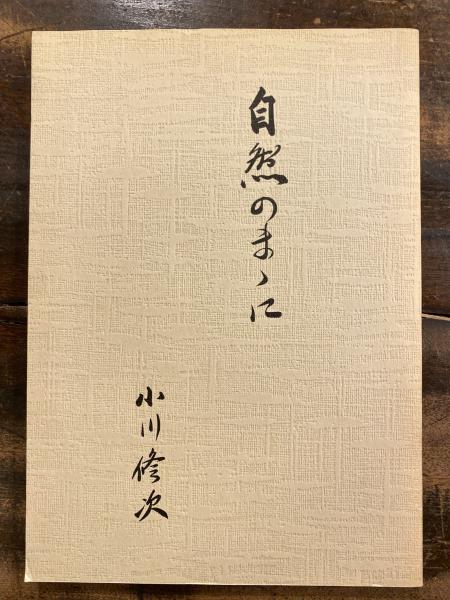 自然のまゝに
小川修次